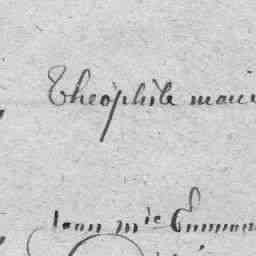 Théophile mari
Jean Mie Emman